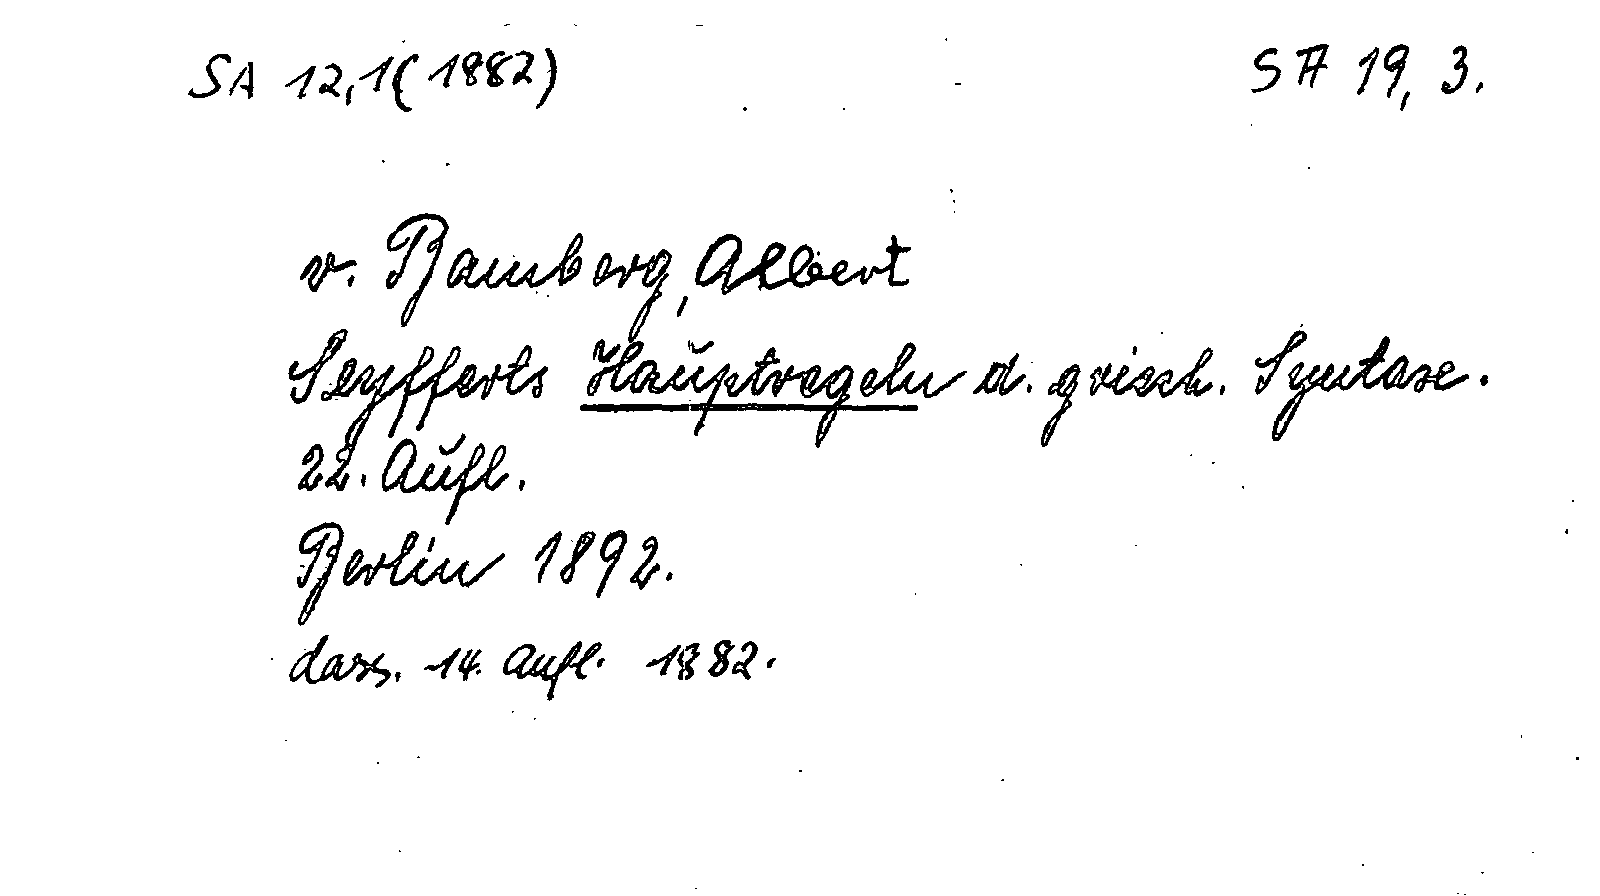 SA 12,1 (1882) SA 19, 3.
v. Bamberg, Albert
Seyfferts Hauptregeln d. griech. Syntax.
22. Aufl.
Berlin 1892.
dass. 14. Aufl. 1882.